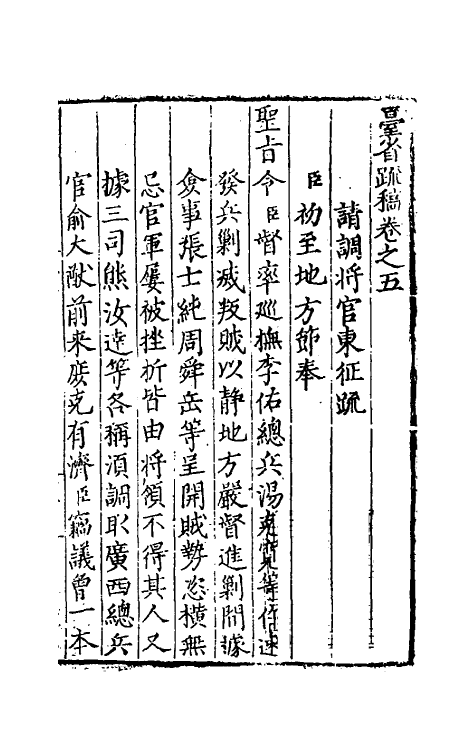 臺省疏稿卷之五
請調将官東征疏
臣初至地方節奉
聖旨令臣督率廵撫李佑總兵湯克寛等作速
發兵剿滅叛賊以静地方嚴督進剿間據
僉事張士純周舜岳等呈開賊勢恣横無
忌官軍屢被挫折皆由将領不得其人又
據三司熊汝逹等各稱湏調取廣西總兵
官俞大猷前來庻克有濟臣竊議曾一本